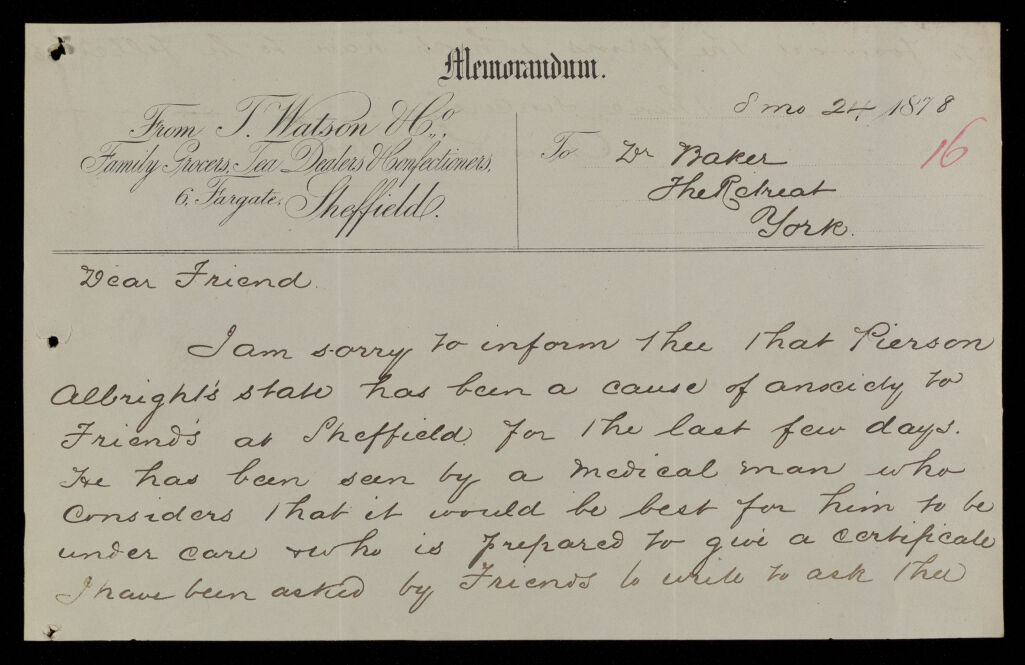 Memorandum.
8 mo 24 1878
16
From T. Watson & Co.,
Family Grocers, Tea Dealers & Confectioners,
6, Fargate, Sheffield.
To Dr Baker
The Retreat
York.
Dear Friend.
I am sorry to inform thee that Pierson
Albright's state has been a cause of anxiety to
Friends at Sheffield for the last few days.
He has been seen by a medical man who
considers that it would be best for him to be
under care & who is prepared to give a certificate
I have been asked by Friends to write to ask thee